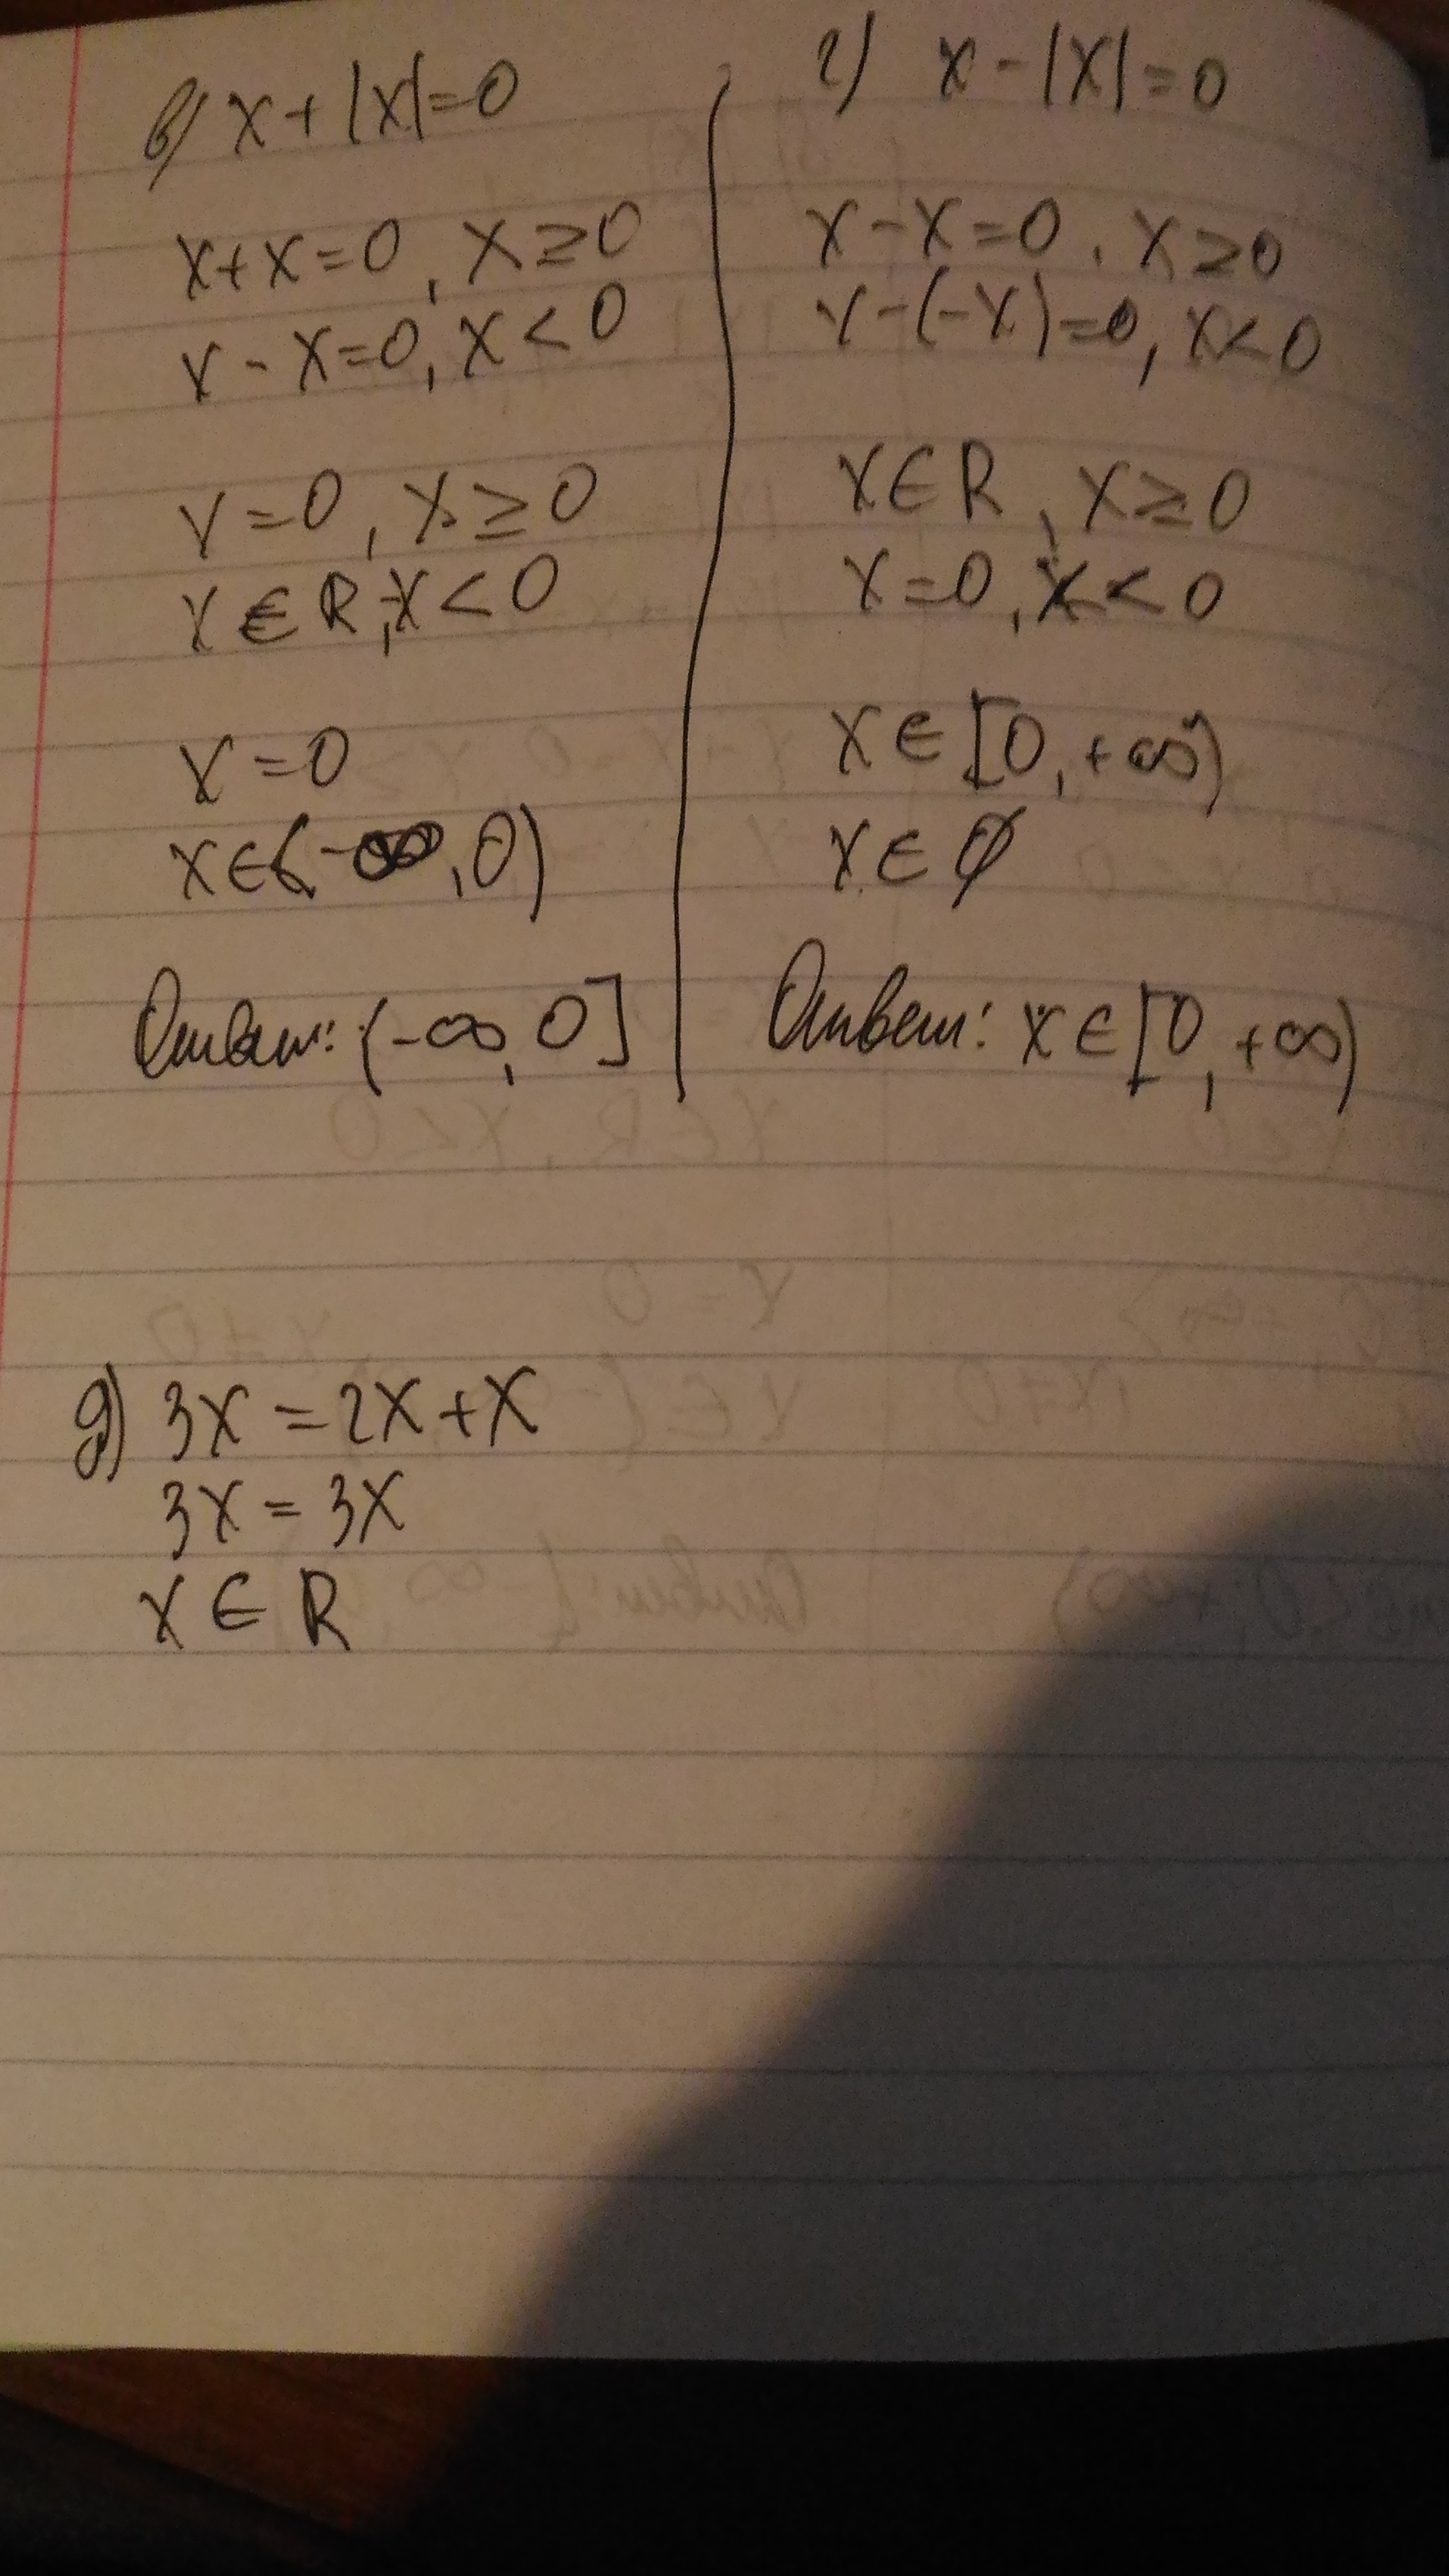 в) x+|x|=0
x+x=0, x≥0
x-x=0, x<0
x=0, x≥0
x∈R, x<0
x=0
x∈(-∞,0)
Ответ: (-∞,0]
г) x-|x|=0
x-x=0, x≥0
x-(-x)=0, x<0
x∈R, x≥0
x=0, x<0
x∈[0,+∞)
x∈∅
Ответ: x∈[0,+∞)
д) 3x=2x+x
3x=3x
x∈R